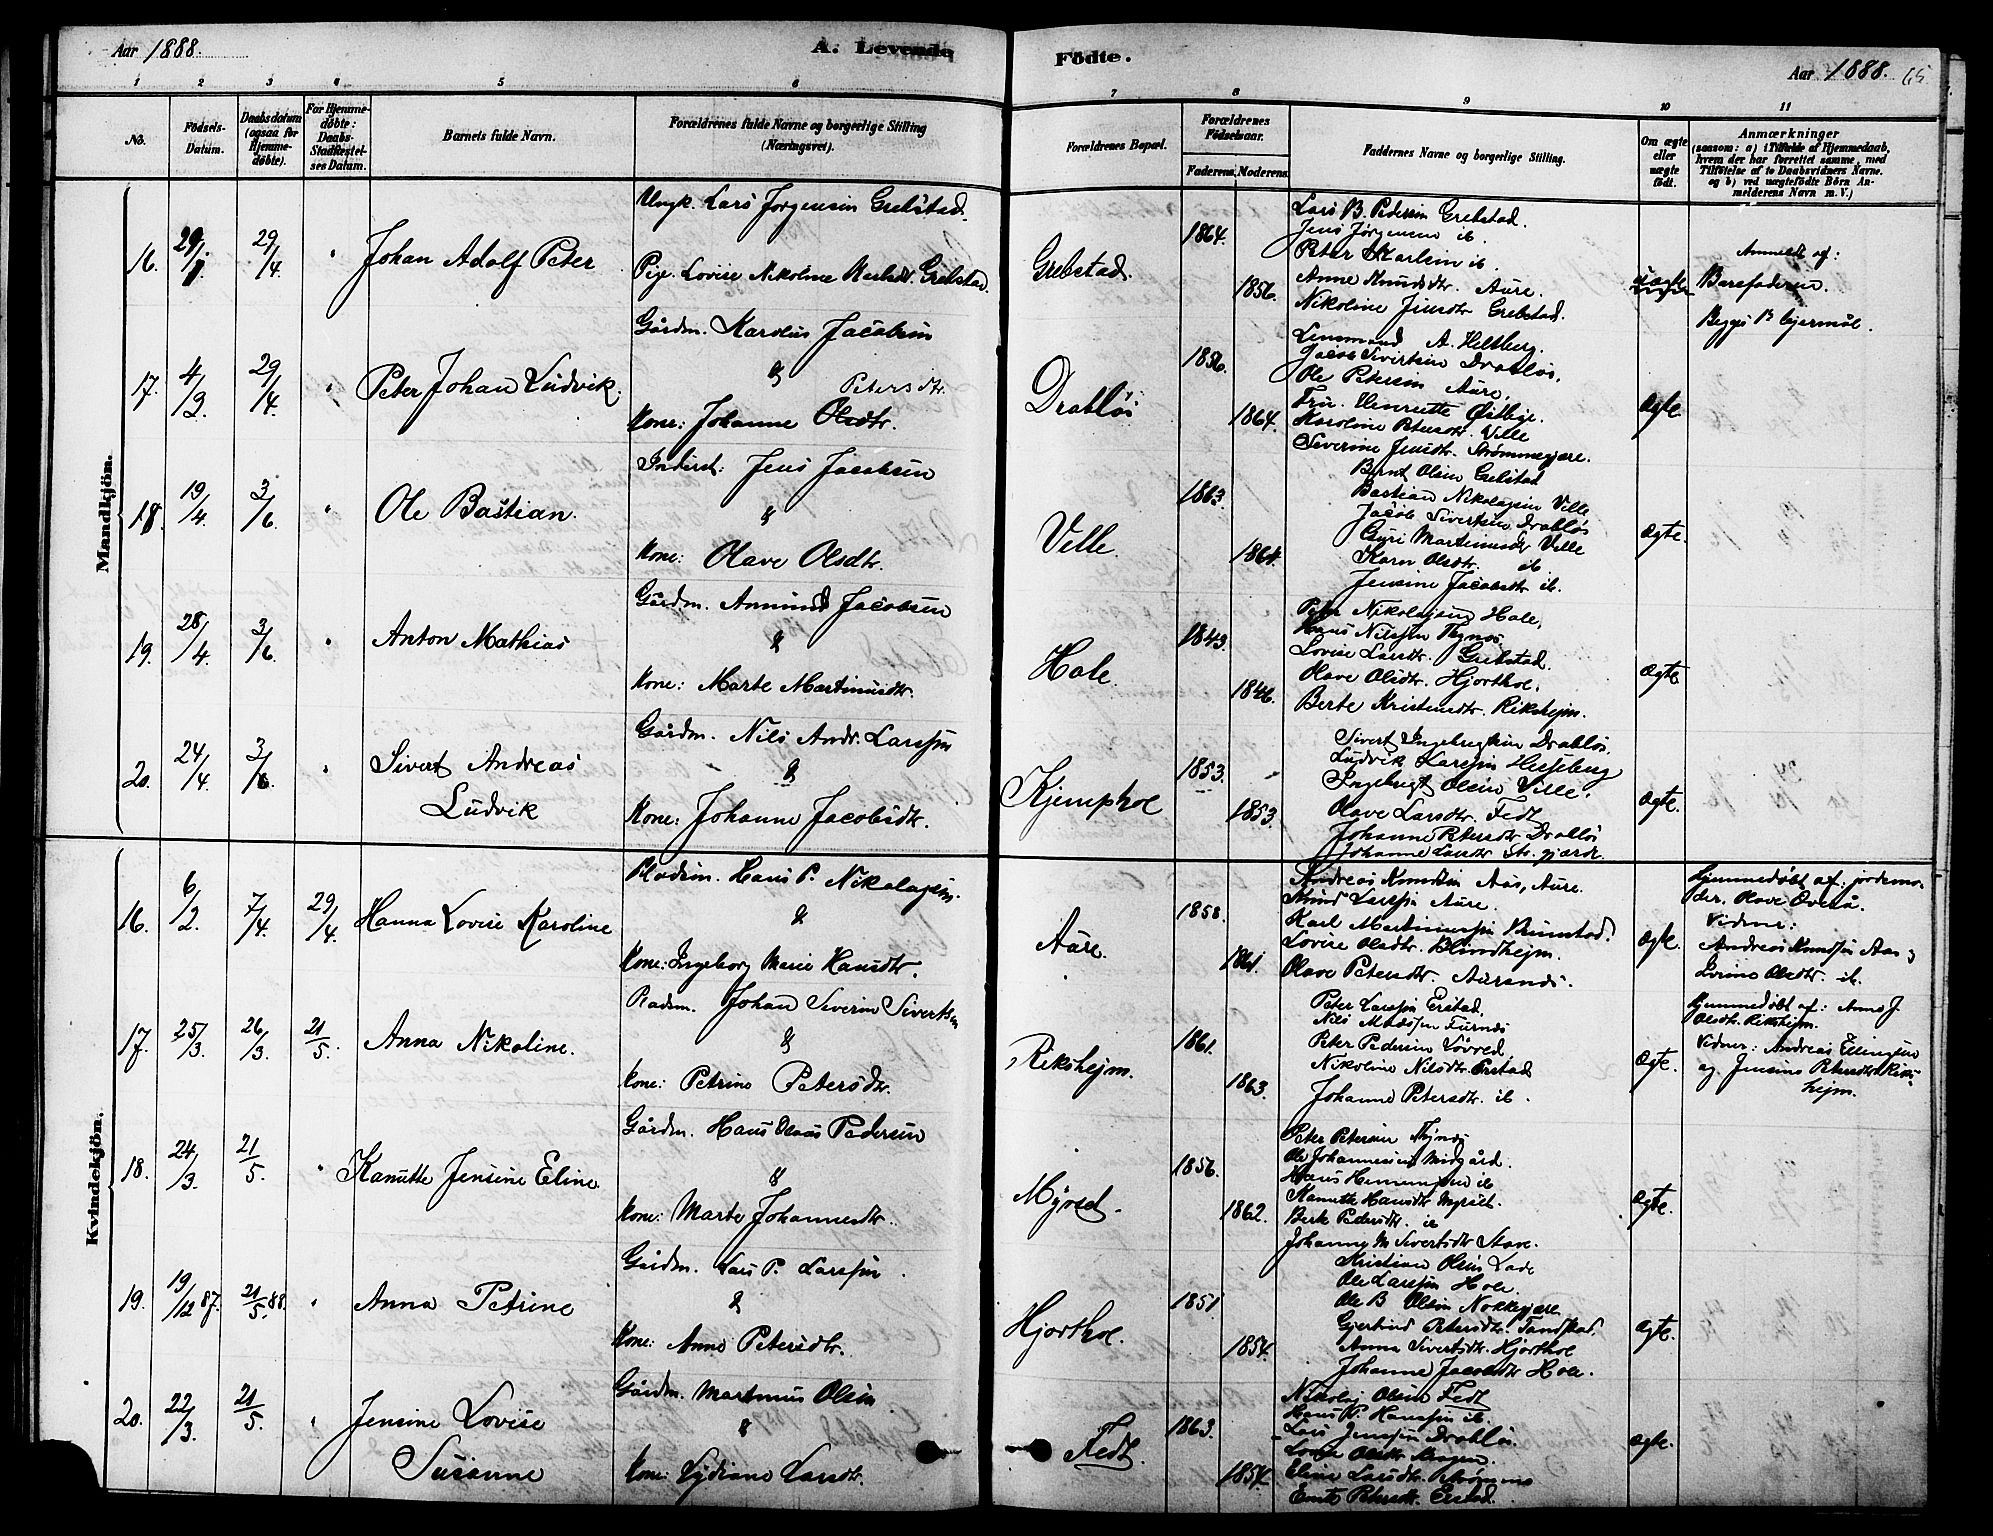 Aar 1888.
A. Levende Födte.
Aar 1888. 65.
1 2 3 4 5 6 7 8 9 10 11
No.
Födsels-Datum.
Daabsdatum (ogsaa for Hjemmedöbte).
For Hjemmedöbte: Daabs-Stadfæstelses Datum.
Barnets fulde Navn.
Forældrenes fulde Navne og borgerlige Stilling (Næringsvei).
Forældrenes Bopæl.
Forældrenes Födselsaar.
Faderens. Moderens.
Faddernes Navne og borgerlige Stilling.
Om ægte eller uægte födt.
Anmærkninger
(saasom: a) i Tilfælde af Hjemmedaab, hvem der har forrettet samme, med Tilföielse af to Daabsvidners Navne. og b) ved uægtefödte Börn Anmelderens Navn m. V.)
Mandkjön.
16. 29/1 29/4 " Johan Adolf Peter
Ungk. Lars Jörgensen Grebstad.
Pige. Lovise Nikoline Karlsdt. Grebstad.
Grebstad.
1864.
1856.
Lars B. Pedersen Grebstad.
Jens Jörgensen ib.
Peter Karlsen ib.
Anne Knudsdtr. Aure.
Nikoline Jensdtr. Grebstad.
uægte
Anmeldt af:
Barnefaderen.
Begges 1ste lejermål.
17. 4/3 29/4 " Peter Johan Ludvik.
Gårdm. Karolus Jacobsen
&
Petersdtr.
Kone: Johanne Olsdtr.
Drabløs
1856.
1864.
Lensmand A. Heltberg.
Jacob Sivertsen Drabløs.
Ole Petersen Aure.
Fru. Henriette
Karoline Petersdtr. Ville
Severine Jensdtr. Strømmegjære.
ægte.
18. 19/4 3/6. " Ole Bastian.
Inderst: Jens Jacobsen
&
Kone: Olave Olsdtr.
Ville
1863.
1864.
Bernt Olsen Grebstad
Bastian Nikolajsen Ville
Jacob Sivertsen Drabløs
Guri Martinusdtr Ville
Karn Olsdtr. ib
Jensine Jacobsdtr ib.
ægte.
19. 28/4 3/6. " Anton Mathias
Gårdm. Annund Jacobsen
&
Kone: Marte Martinusdtr.
Hole.
1843.
1846.
Peter Nikolajsen Hole,
Hans Nilssen Tynes
Lovise Larsdtr. Grebstad.
Olave Olsdtr. Hjorthol.
Berte Kristensdtr. Riksheim.
ægte
20. 24/4 3/6. " Sivert Andreas
Ludvik
Gårdm. Nils Andr. Larssen
&
Kone: Johanne Jacobsdtr.
Kjemphol
1853.
1853.
Sivert Ingebrigtsen Drabløs.
Ludvik Larssen Hesseberg
Ingebrigt Olsen Ville.
Olave Larsdtr. Fedt
Johanne Petersdtr Drabløs
Johanne Larsdtr Str. gjærde
ægte.
Kvindekjön.
16. 6/2 7/4. 29/4. Hanna Lovise Karoline
Pladsm. Hans P. Nikolajsen.
&
Kone: Ingeborg Marie Hansdtr.
Aure.
1858.
1861.
Andreas Knudsen Aas, Aure.
Knud Larssen Aure.
Karl Martinussen Brunstad.
Lovise Olsdtr. Blindhejm.
Olave Petersdtr. Aurenes.
ægte.
Hjemmedøbt af: jordemoder. Olave
Vidner:
Andreas Knudsen Aas &
Lovine Olsdtr. ib.
17. 25/3. 26/3. 21/5. Anna Nikoline.
Pladsm. Johan Severin Sivertsen
&
Kone: Petrine Petersdtr.
Rikshejm.
1861.
1863.
Peter Larssen Erstad.
Nils Madssen Furnes
Peter Pedersen Løvred
Nikoline Nilsdtr. Erstad
Johanne Petersdtr. ib.
ægte.
Hjemmedøbt af: Anne J.
Olsdtr. Rikshejm.
Vidner: Andreas Ellingsen
og Jensine Petersdtr Rikshejm.
18. 24/3. 21/5. " Kanutte Jensine Eline
Gårdm. Hans Olaus Pedersen
&
Kone: Marte Johannesdtr.
Myrset.
1856.
1862.
Peter Petersen Tynes
Ole Johannessen Midgård.
Hans Henningsen ib
Kanutte Hansdtr Myrset.
Berte Pedersdtr. ib
Johanne M Sivertsdtr Stave.
ægte.
19. 19/12 87. 21/5 88. " Anna Petrine
Gårdm. Lars P. Larssen
&
Kone: Anne Petersdtr.
Hjorthol.
1851
1854.
Kristian Olsen Lade
Ole Larssen Hole.
Ole B Olsen Nokkegjære
Gjertrud Petersdtr. Tandstad.
Anna Sivertsdtr. Hjorthol
Johanne Jacobsdtr Hole.
ægte.
20. 22/3. 21/5. " Jensine Lovise
Susanne
Gårdm. Martinus Olsen
&
Kone: Lydiane Larsdtr.
Fedt.
1863.
1857.
Nikolaj Olsen Fedt
Hans N. Hanssen ib.
Lars Jenssen Drabløs.
Lovise Olsdtr.
Eline Larsdtr Strømme
Petersdtr. Erstad.
ægte.